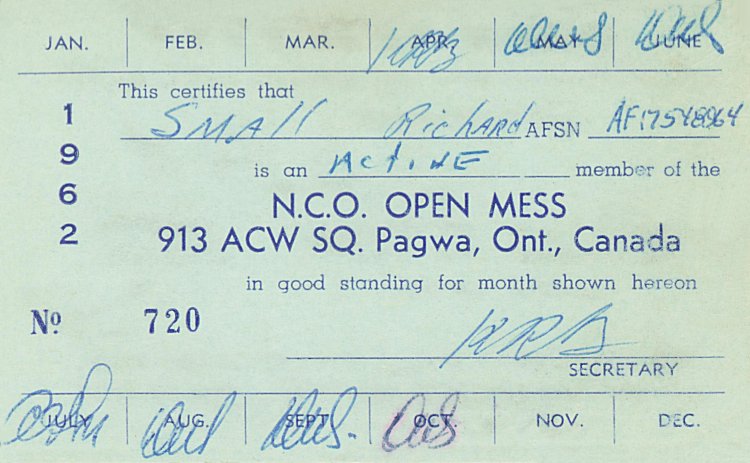 JAN. FEB. MAR. APR. MAY JUNE
This certifies that
Small Richard AFSN AF17548964
is an Active member of the
1962
N.C.O. OPEN MESS
913 ACW SQ. Pagwa, Ont., Canada
in good standing for month shown hereon
Nº 720
SECRETARY
JULY AUG. SEPT. OCT. NOV. DEC.